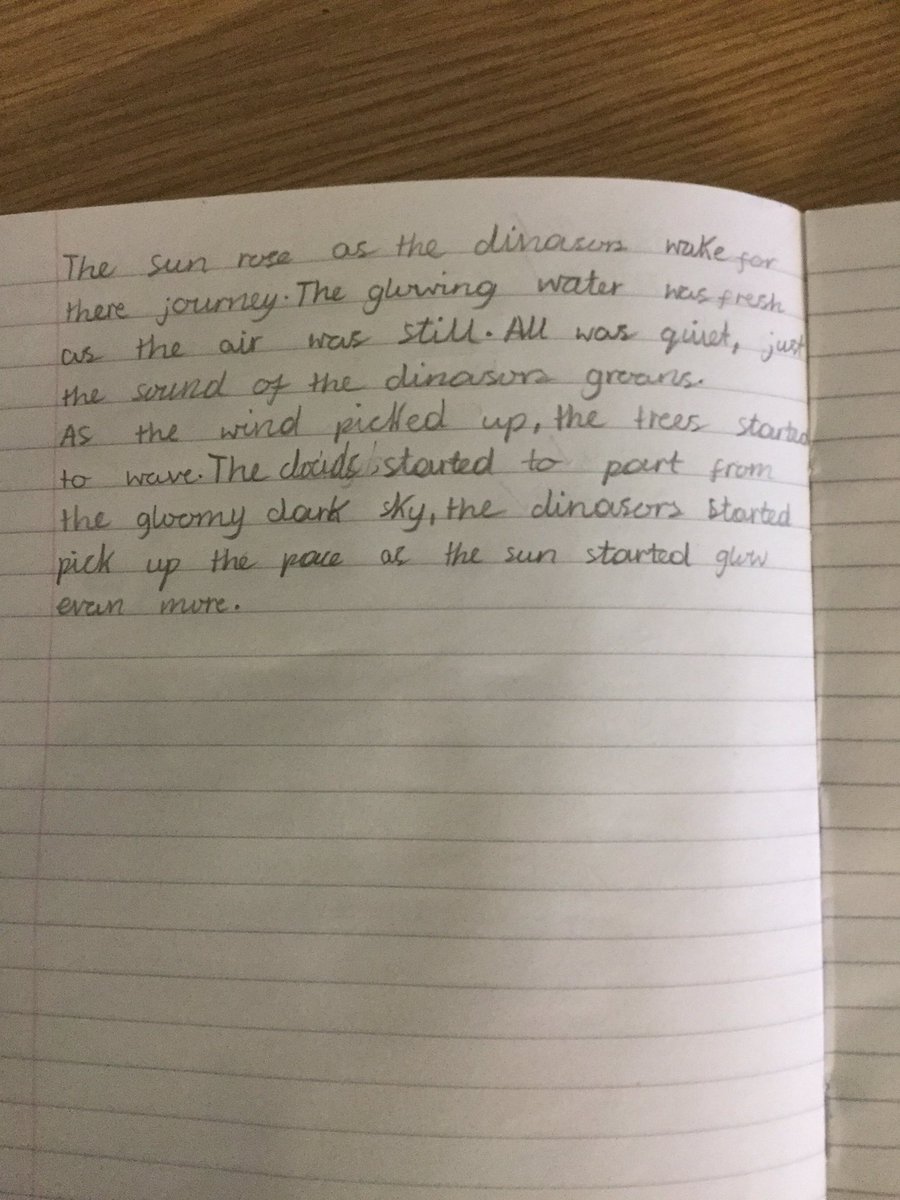 The sun rose as the dinasors wake for
there journey. The glowing water was fresh
as the air was still. All was quiet, just
the sound of the dinasors groans.
As the wind picked up, the trees started
to wave. The clouds started to part from
the gloomy dark sky, the dinasors started
pick up the pace as the sun started glow
evan more.